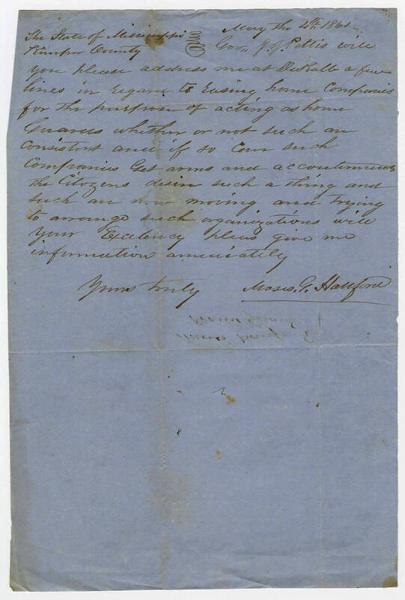 The State of Mississippi
Kemper County
May the 4th 1861
Gov. J J Pettis will
you please address me at DeKalb a few
lines in regard to Raising home Companies
for the purpose of acting as home
Guards whether or not such an
consistent and if so can such
Companies Get arms and accoutrements
the Citizens desire such a thing and
such an now moving and trying
to arrange such organizations will
your Excelency pleas give me
information amediately
Yours truly Moses G. Hallford